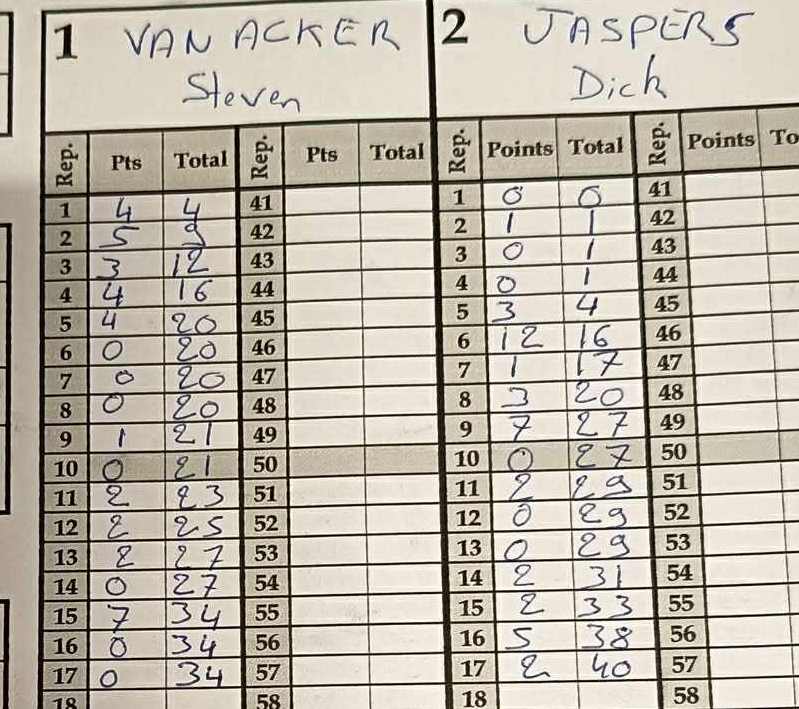 1 VAN ACKER 2 JASPERS
Steven Dick
Rep. Pts Total Rep. Pts Total Rep. Points Total Rep. Points To
1 4 4 41 1 0 0 41
2 5 9 42 2 1 1 42
3 3 12 43 3 0 1 43
4 4 16 44 4 0 1 44
5 4 20 45 5 3 4 45
6 0 20 46 6 12 16 46
7 0 20 47 7 1 17 47
8 0 20 48 8 3 20 48
9 1 21 49 9 7 27 49
10 0 21 50 10 0 27 50
11 2 23 51 11 2 29 51
12 2 25 52 12 0 29 52
13 2 27 53 13 0 29 53
14 0 27 54 14 2 31 54
15 7 34 55 15 2 33 55
16 0 34 56 16 5 38 56
17 0 34 57 17 2 40 57
18 58 18 58